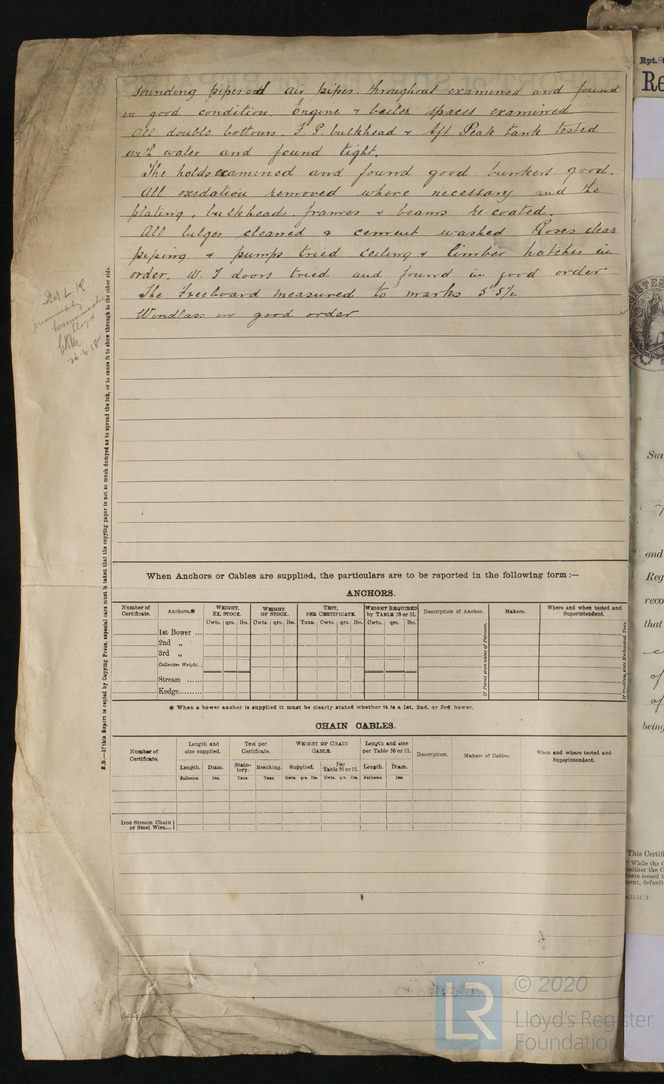 sounding pipes and air pipes throughout examined and found
in good condition. Engine & boiler spaces examined
All double bottoms. F. P. bulkhead & Aft Peak tank tested
with water and found tight.
The holds examined and found good bunkers good.
All oxidation removed where necessary and the
plating, bulkheads, frames & beams re-coated.
All bilges cleaned & cement washed Roses clear
piping & pumps tried ceiling & limber hatches in
order. W. T doors tried and found in good order
The Freeboard measured to marks 5' 5½
Windlass in good order
26.4.18
N.B.—If this Report is copied by Copying Press, especial care must be taken that the copying paper is not so much damped as to spread the ink, or to cause it to show through to the other side.
When Anchors or Cables are supplied, the particulars are to be reported in the following form :—
ANCHORS.
Number of Certificate. Anchors.* WEIGHT, EX. STOCK. WEIGHT OF STOCK. TEST, PER CERTIFICATE. WEIGHT REQUIRED by TABLE 30 or 31. Description of Anchor. Makers. Where and when tested and Superintendent.
Cwts. qrs. lbs. Cwts. qrs. lbs. Tons. Cwts. qrs. lbs. Cwts. qrs. lbs.
1st Bower ...
2nd „
3rd „
Collective Weight.
Stream ......
Kedge........
* When a bower anchor is supplied it must be clearly stated whether it is a 1st, 2nd, or 3rd bower.
CHAIN CABLES.
Number of Certificate. Length and size supplied. Test per Certificate. WEIGHT OF CHAIN CABLE. Length and size per Table 30 or 31. Description. Makers of Cables. When and where tested and Superintendent.
Length. Diam. Statutory. Breaking. Supplied. Per Table 30 or 31. Length. Diam.
Fathoms. Ins. Tons. Tons. Cwts. qrs. lbs. Cwts. qrs. lbs. Fathoms. Ins.
Iron Stream Chain or Steel Wire...
Rpt.
Re
Sur
and
Reg
reco
that
of
of
being
This Certifi
While the C
neither the C
© 2020
LR
Lloyd's Register
Foundation